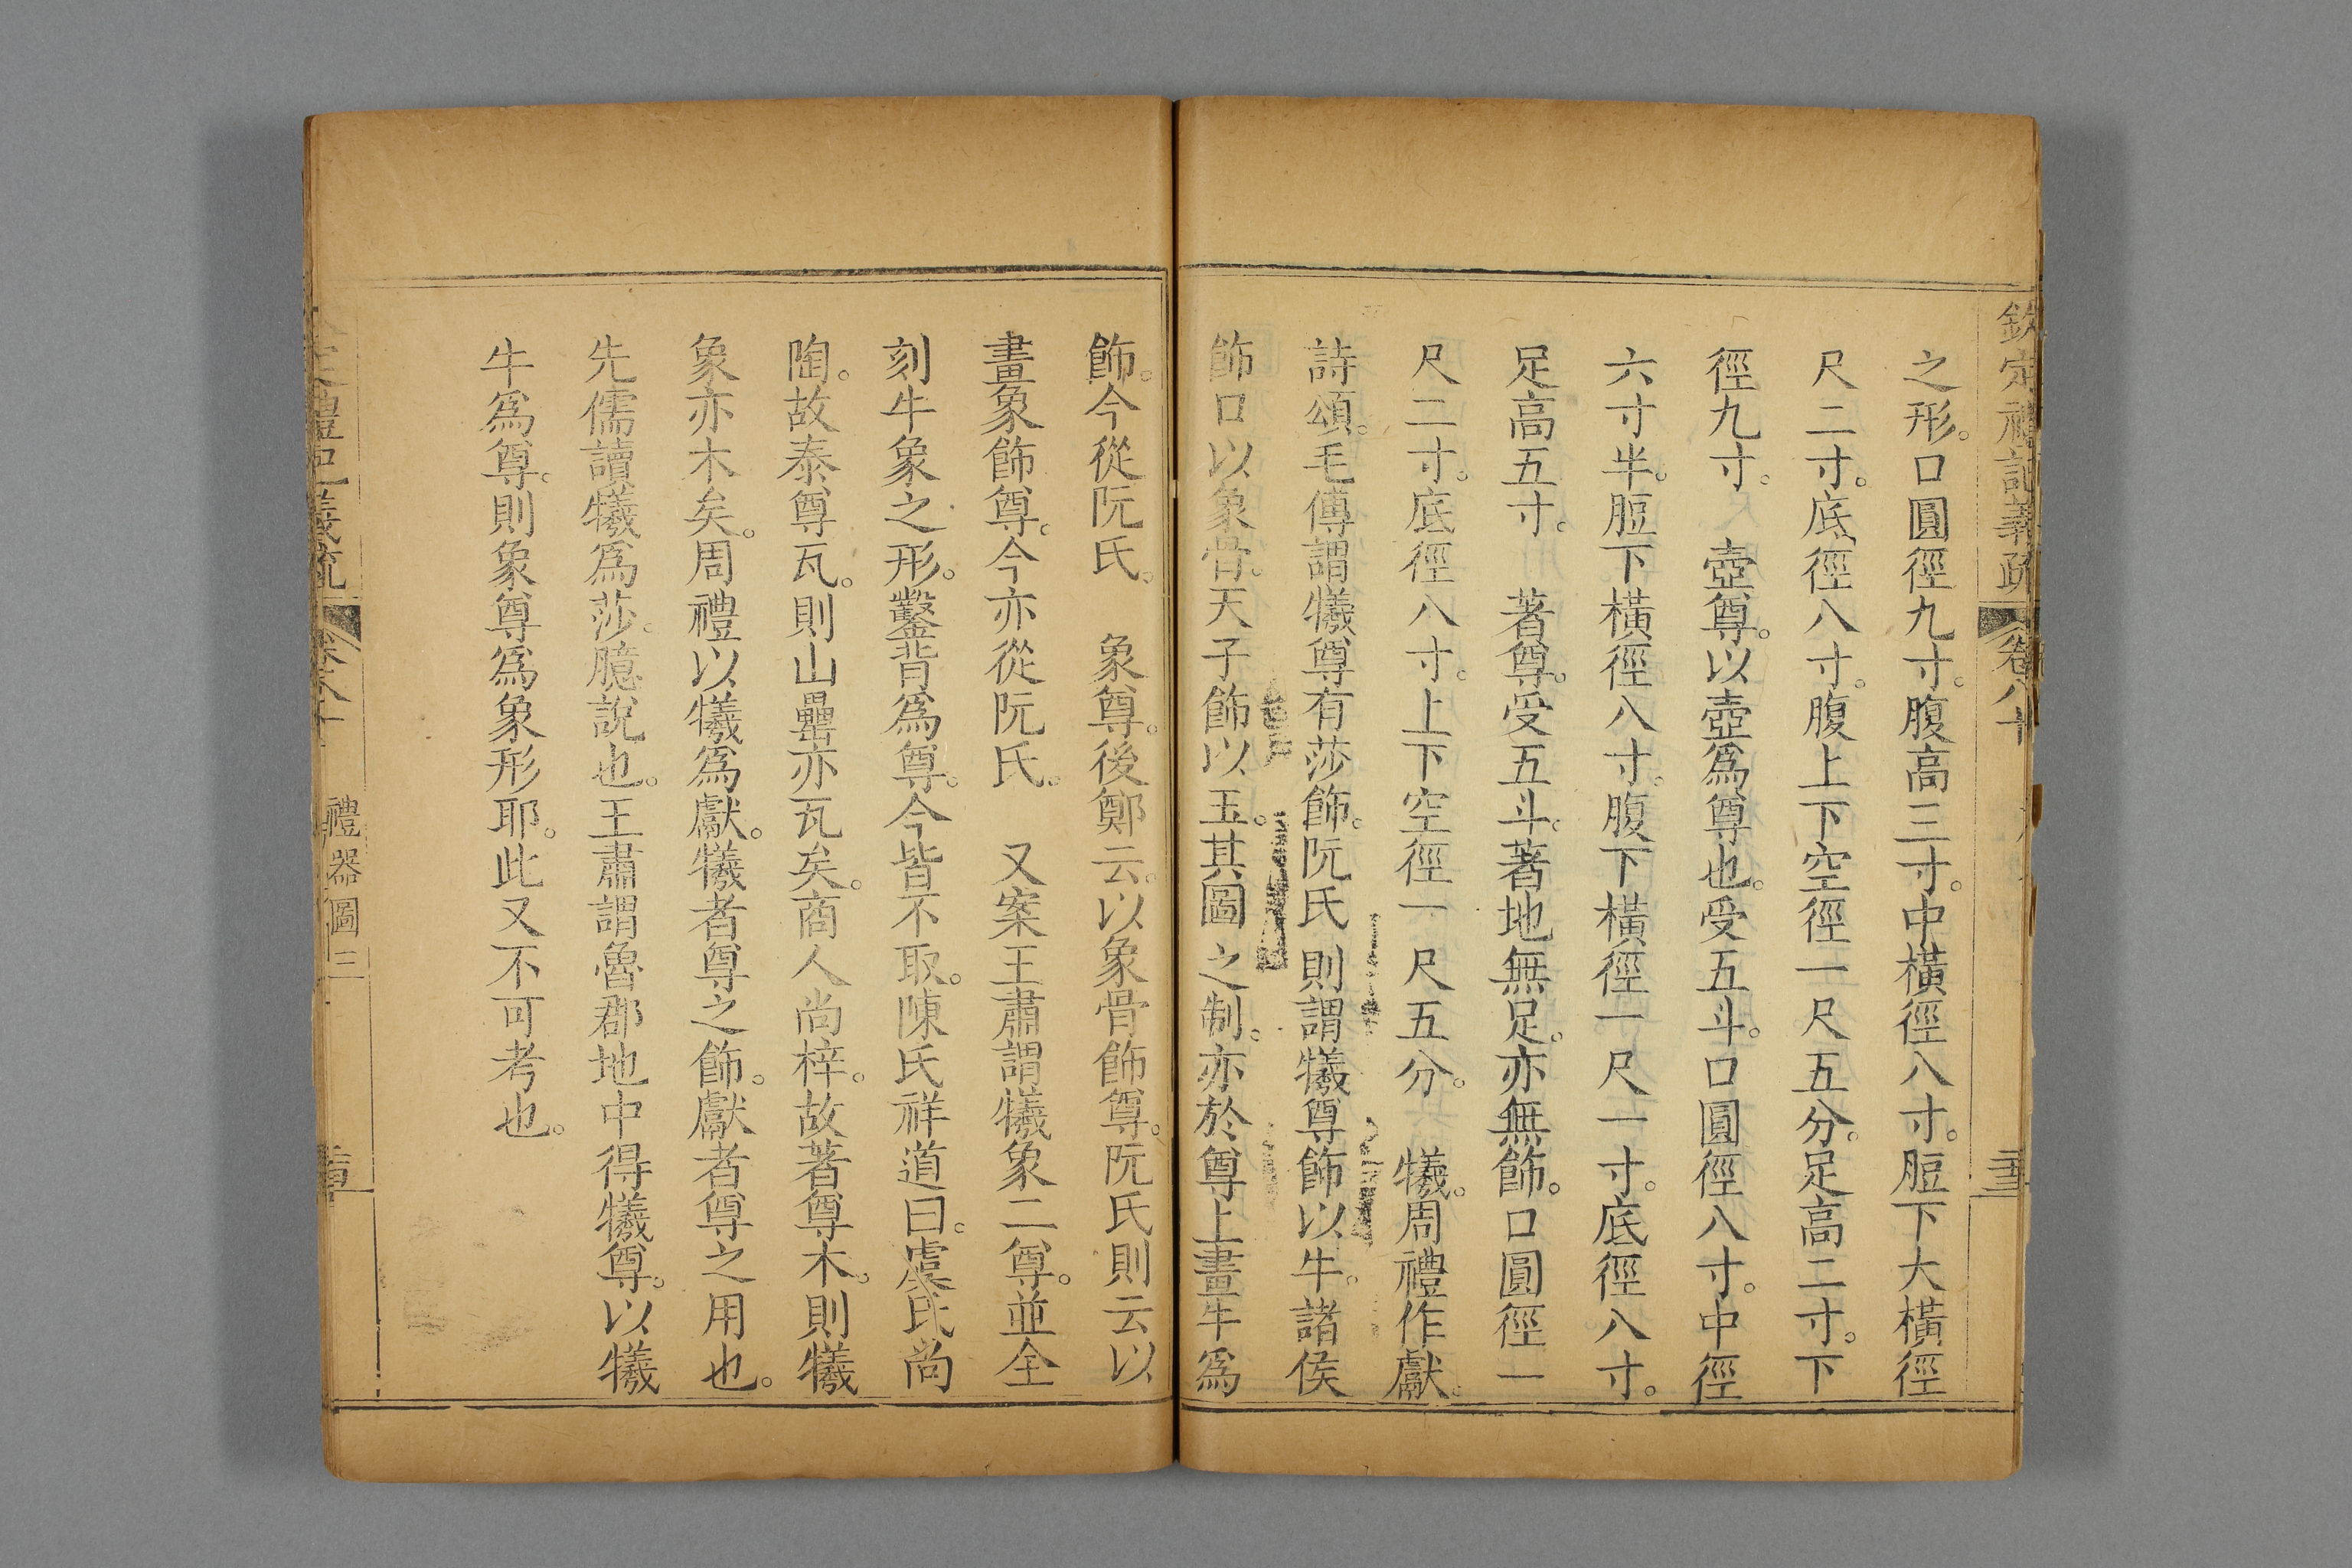 欽定禮記義疏 卷八十
之形。口圓徑九寸。腹高三寸。中橫徑八寸。脰下大橫徑
尺二寸。底徑八寸。腹上下空徑一尺五分。足高二寸。下
徑九寸。 壺尊。以壺爲尊也。受五斗。口圓徑八寸。中徑
六寸半。脰下橫徑八寸。腹下橫徑一尺一寸。底徑八寸。
足高五寸。 著尊。受五斗。著地無足。亦無飾。口圓徑一
尺二寸。底徑八寸。上下空徑一尺五分。 犧。周禮作獻。
詩頌。毛傳謂犧尊有莎飾。阮氏則謂犧尊飾以牛。諸侯
飾口以象骨。天子飾以玉。其圖之制。亦於尊上畫牛爲
飾。今從阮氏。 象尊。後鄭云。以象骨飾尊。阮氏則云以
畫象飾尊。今亦從阮氏。 又案王肅謂犧象二尊。並全
刻牛象之形。鑿背爲尊。今皆不取。陳氏祥道曰。虞氏尚
陶。故泰尊瓦。則山罍亦瓦矣。商人尚梓。故著尊木。則犧
象亦木矣。周禮以犧爲獻。犧者尊之飾。獻者尊之用也。
先儒讀犧爲莎。臆說也。王肅謂魯郡地中得犧尊。以犧
牛爲尊。則象尊爲象形耶。此又不可考也。
禮記義疏 卷八十 禮器圖三